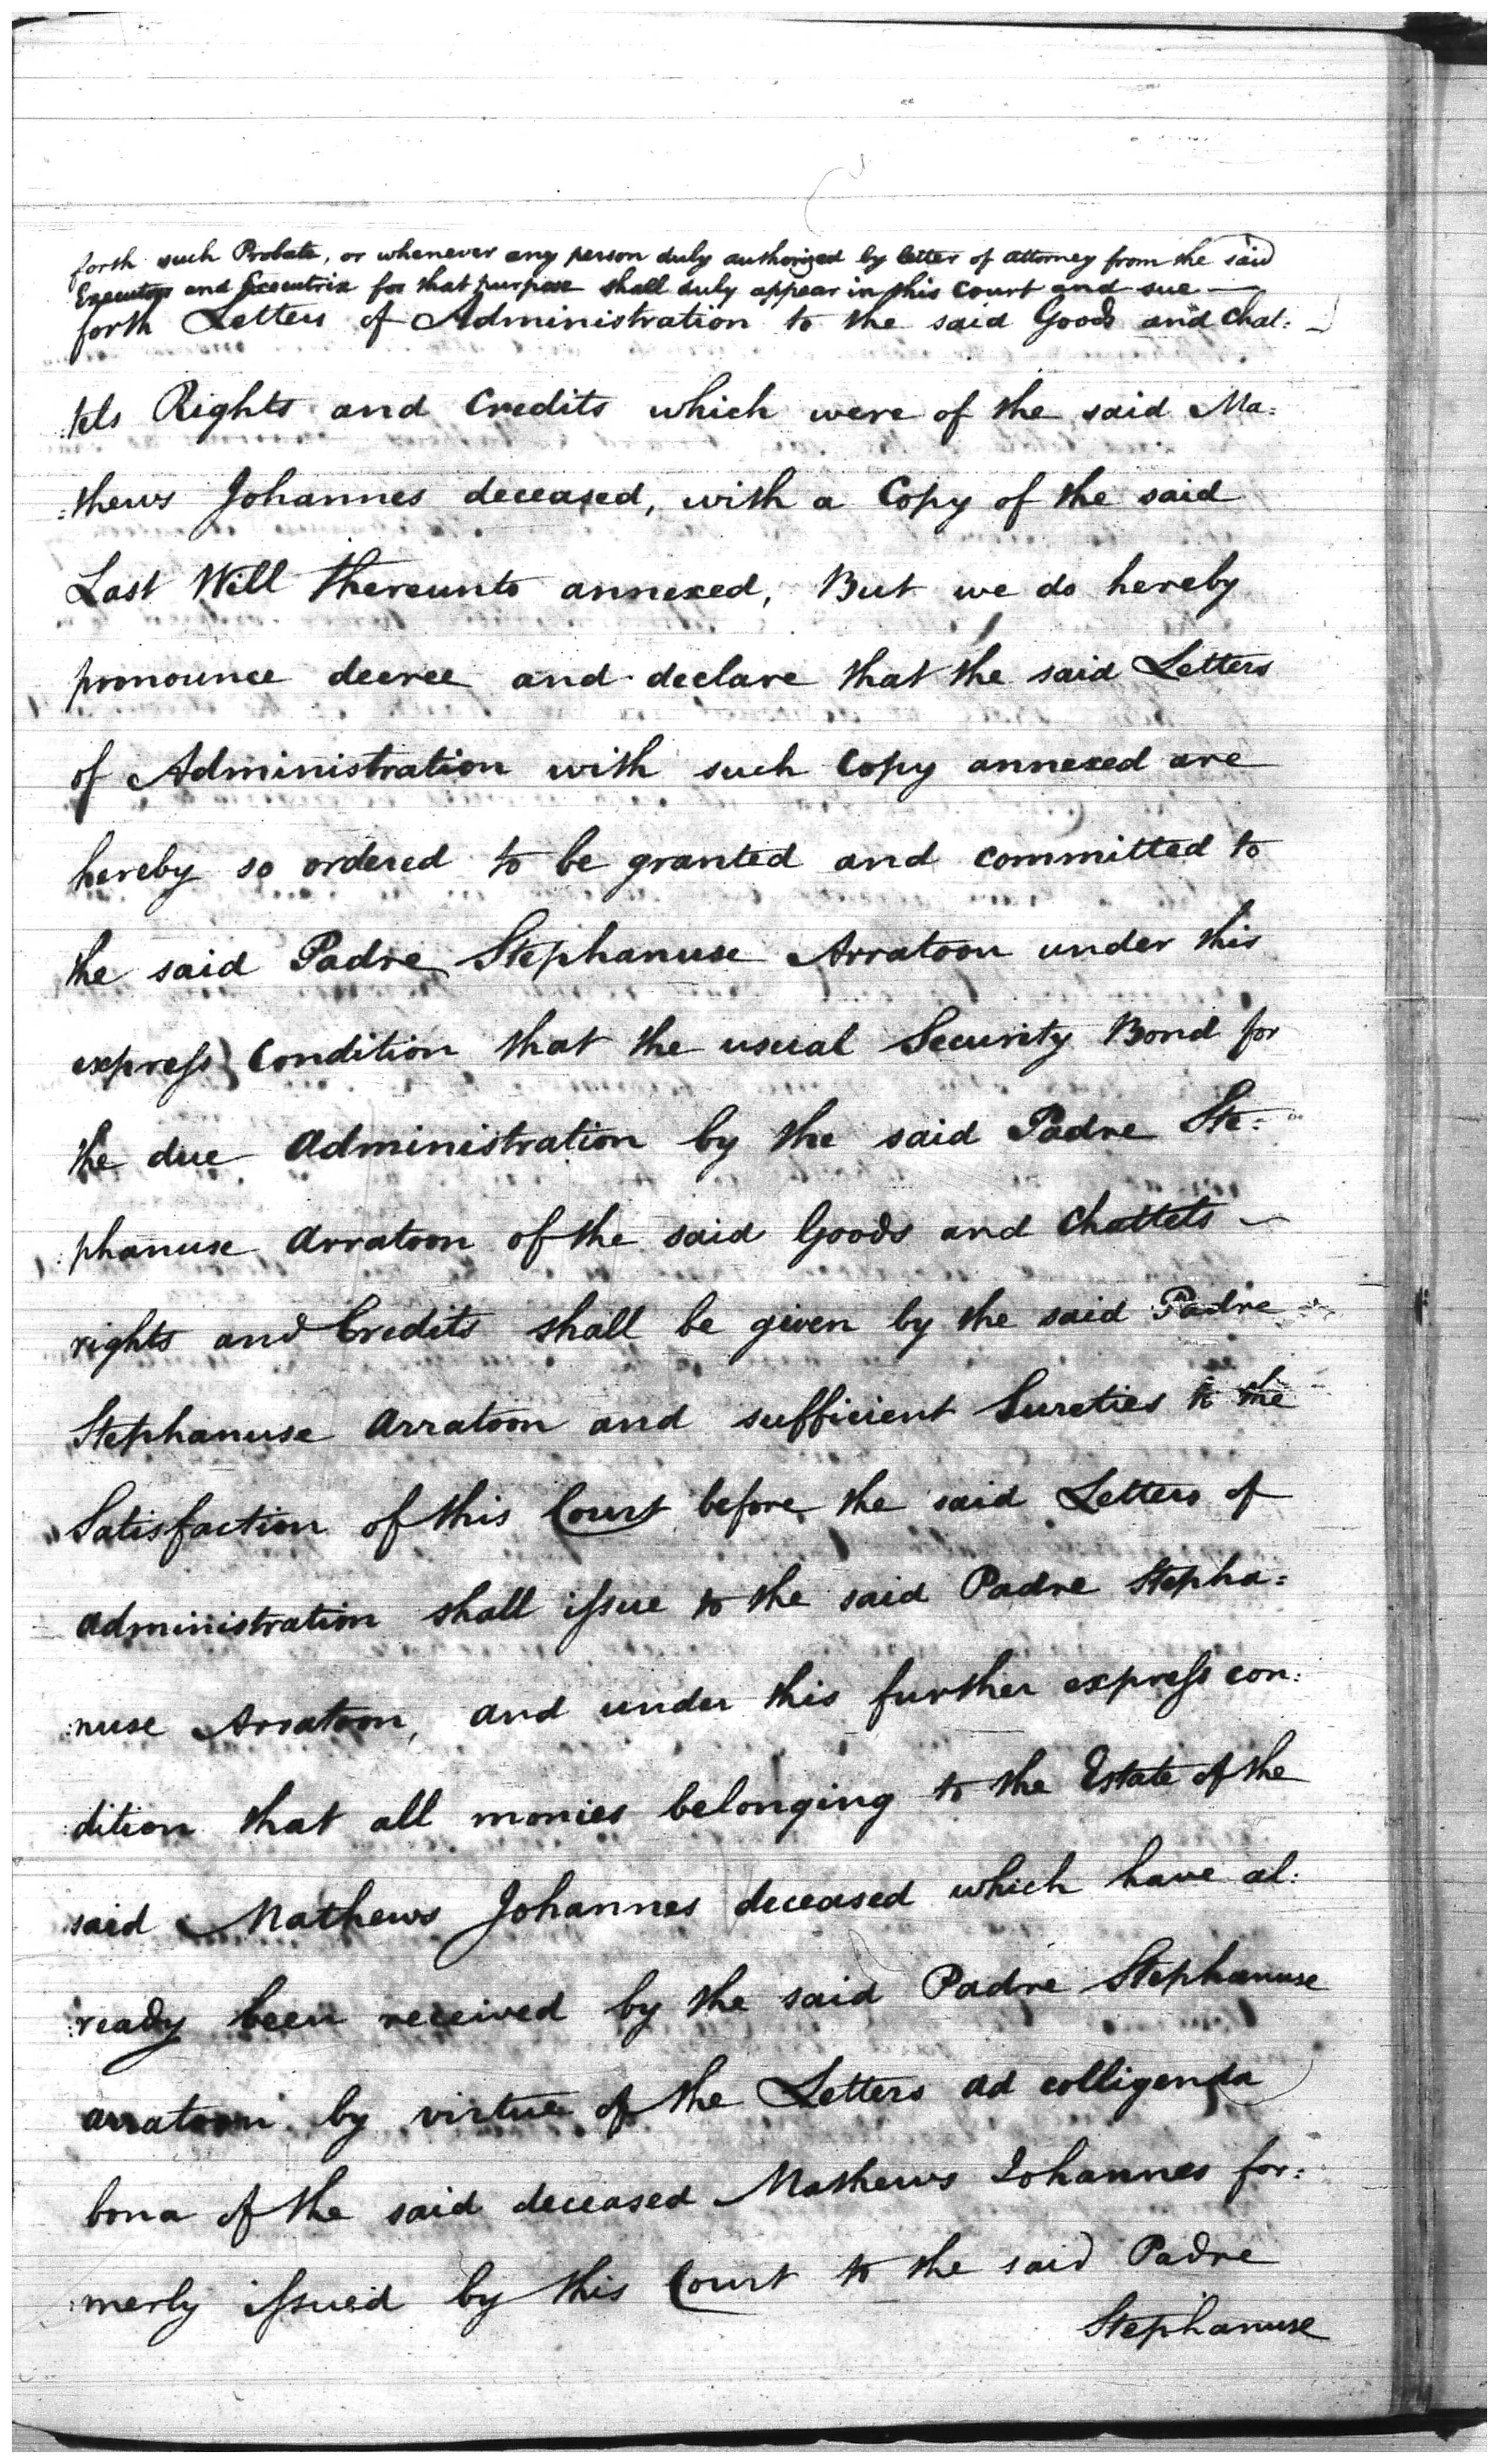 forth such Probate, or whenever any person duly authorized by letter of attorney from the said
Executors and Executrix for that purpose shall duly appear in this Court and sue —
forth Letters of Administration to the said Goods and Chat:
:tels Rights and Credits which were of the said Ma:
:thews Johannes deceased, with a Copy of the said
Last Will thereunto annexed, But we do hereby
pronounce decree and declare that the said Letters
of Administration with such Copy annexed are
hereby so ordered to be granted and committed to
the said Padre Stephanuse Arratoon under this
express Condition that the usual Security Bond for
the due Administration by the said Padre Ste:
:phanuse Arratoon of the said Goods and Chattels —
rights and Credits shall be given by the said Padre
Stephanuse Arratoon and sufficient Sureties to the
Satisfaction of this Court before the said Letters of
Administration shall issue to the said Padre Stepha:
:nuse Arratoon, and under this further express con:
:dition that all monies belonging to the Estate of the
said Mathews Johannes deceased which have al:
:ready been received by the said Padre Stephanuse
Arratoon by virtue of the Letters ad colligenda
bona of the said deceased Mathews Johannes for:
:merly issued by this Court to the said Padre
Stephanuse